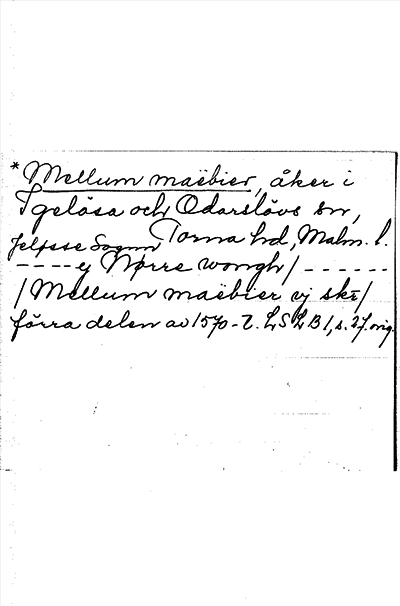 * Mellum maëbier, åker i
Igelösa och Odarslövs sn,
Jelsse Sognn Torna hd, Malm. l.
----ej Nørre wongh/ ------
/Mellum maëbier vj skr/
förra delen av 1570-t. LSLB 1, s. 27. orig.